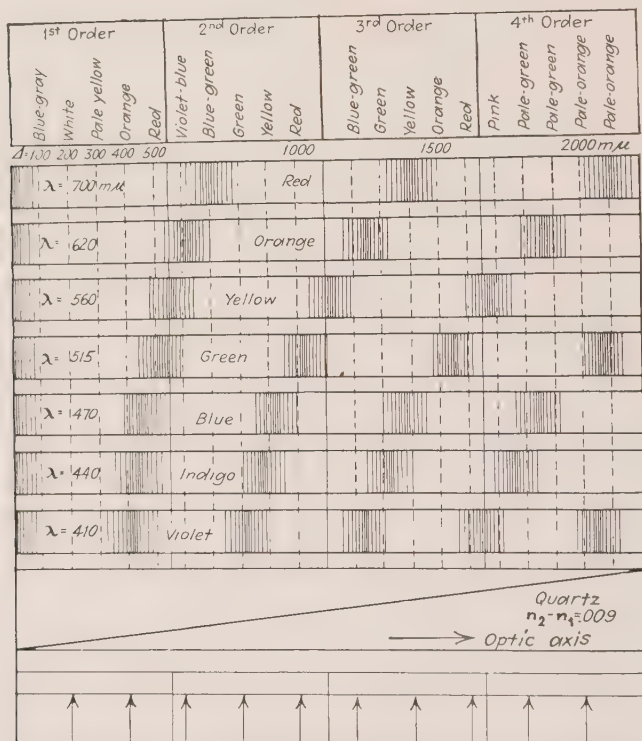 1st Order 2nd Order 3rd Order 4th Order
Blue-gray
White
Pale yellow
Orange
Red
Violet-blue
Blue-green
Green
Yellow
Red
Blue-green
Green
Yellow
Orange
Red
Pink
Pale-green
Pale-green
Pale-orange
Pale-orange
Δ=100 200 300 400 500 1000 1500 2000 mμ
λ= 700 mμ Red
λ= 620 Orange
λ= 560 Yellow
λ= 515 Green
λ= 470 Blue
λ= 440 Indigo
λ= 410 Violet
Quartz
n₂-n₁=.009
Optic axis